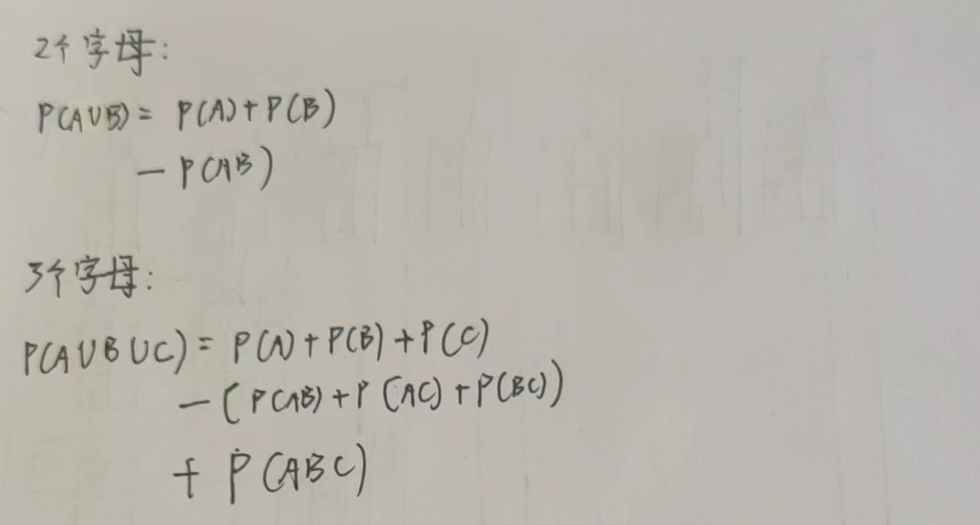 2个字母:
P(A∪B)= P(A)+P(B)
-P(AB)
3个字母:
P(A∪B∪C)= P(A)+P(B)+P(C)
-(P(AB)+P(AC)+P(BC))
+P(ABC)